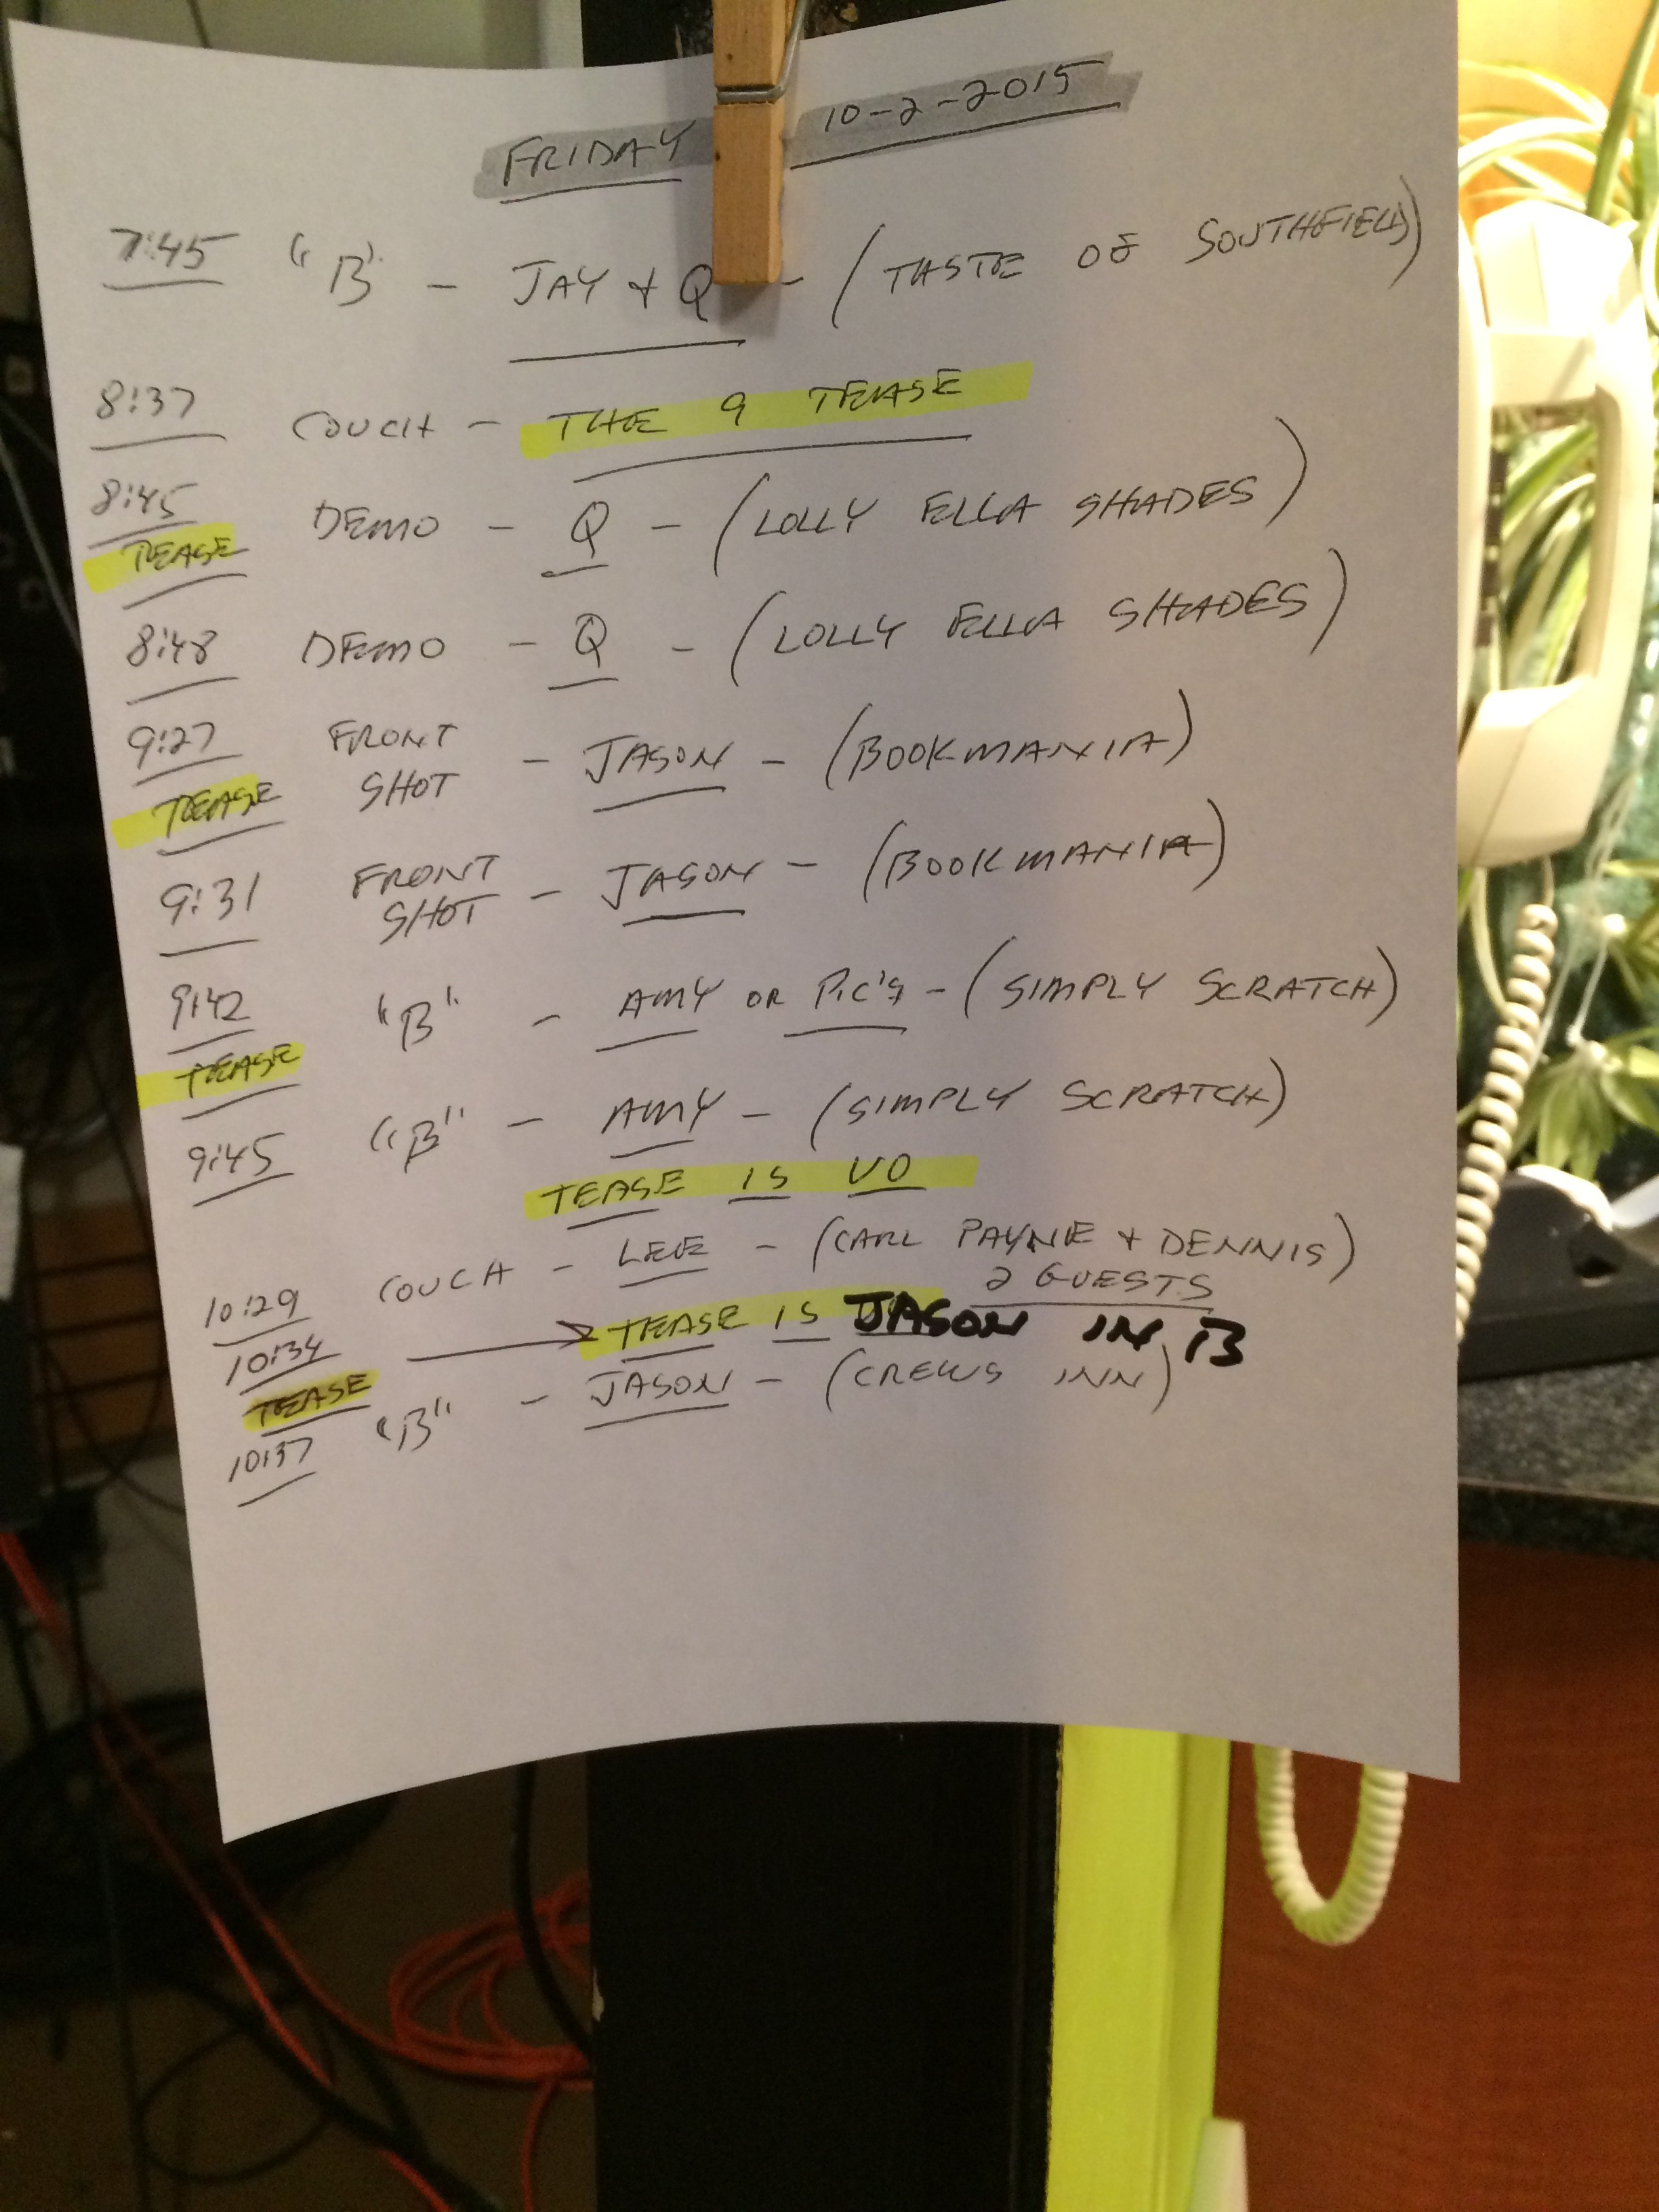 FRIDAY 10-2-2015
7:45 "B" - JAY + Q - (TASTE OF SOUTHFIELD)
8:37 COUCH - THE 9 TEASE
8:45 DEMO - Q - (LOLLY ELLA SHADES)
TEASE
8:48 DEMO - Q - (LOLLY ELLA SHADES)
9:27 FRONT SHOT - JASON - (BOOKMANIA)
TEASE
9:31 FRONT SHOT - JASON - (BOOKMANIA)
9:42 "B" - AMY OR PIC'S - (SIMPLY SCRATCH)
TEASE
9:45 "B" - AMY - (SIMPLY SCRATCH)
TEASE IS VO
10:29 COUCH - LEE - (CARL PAYNE + DENNIS)
2 GUESTS
10:34 → TEASE IS JASON IN B
TEASE
10:37 "B" - JASON - (CREWS INN)